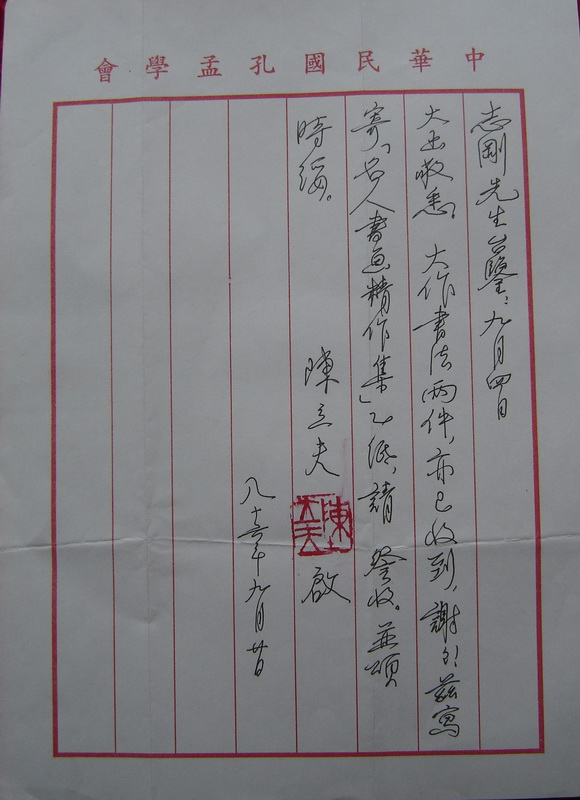 中華民國孔孟學會
志剛先生台鑒：九月四日
大函敬悉。大作書法兩件，亦已收到，謝謝！茲寫
寄「名人書画精作集」乙紙，請 詧收。並頌
時綏。
陳立夫 啟
陳立夫
八十六年九月廿日